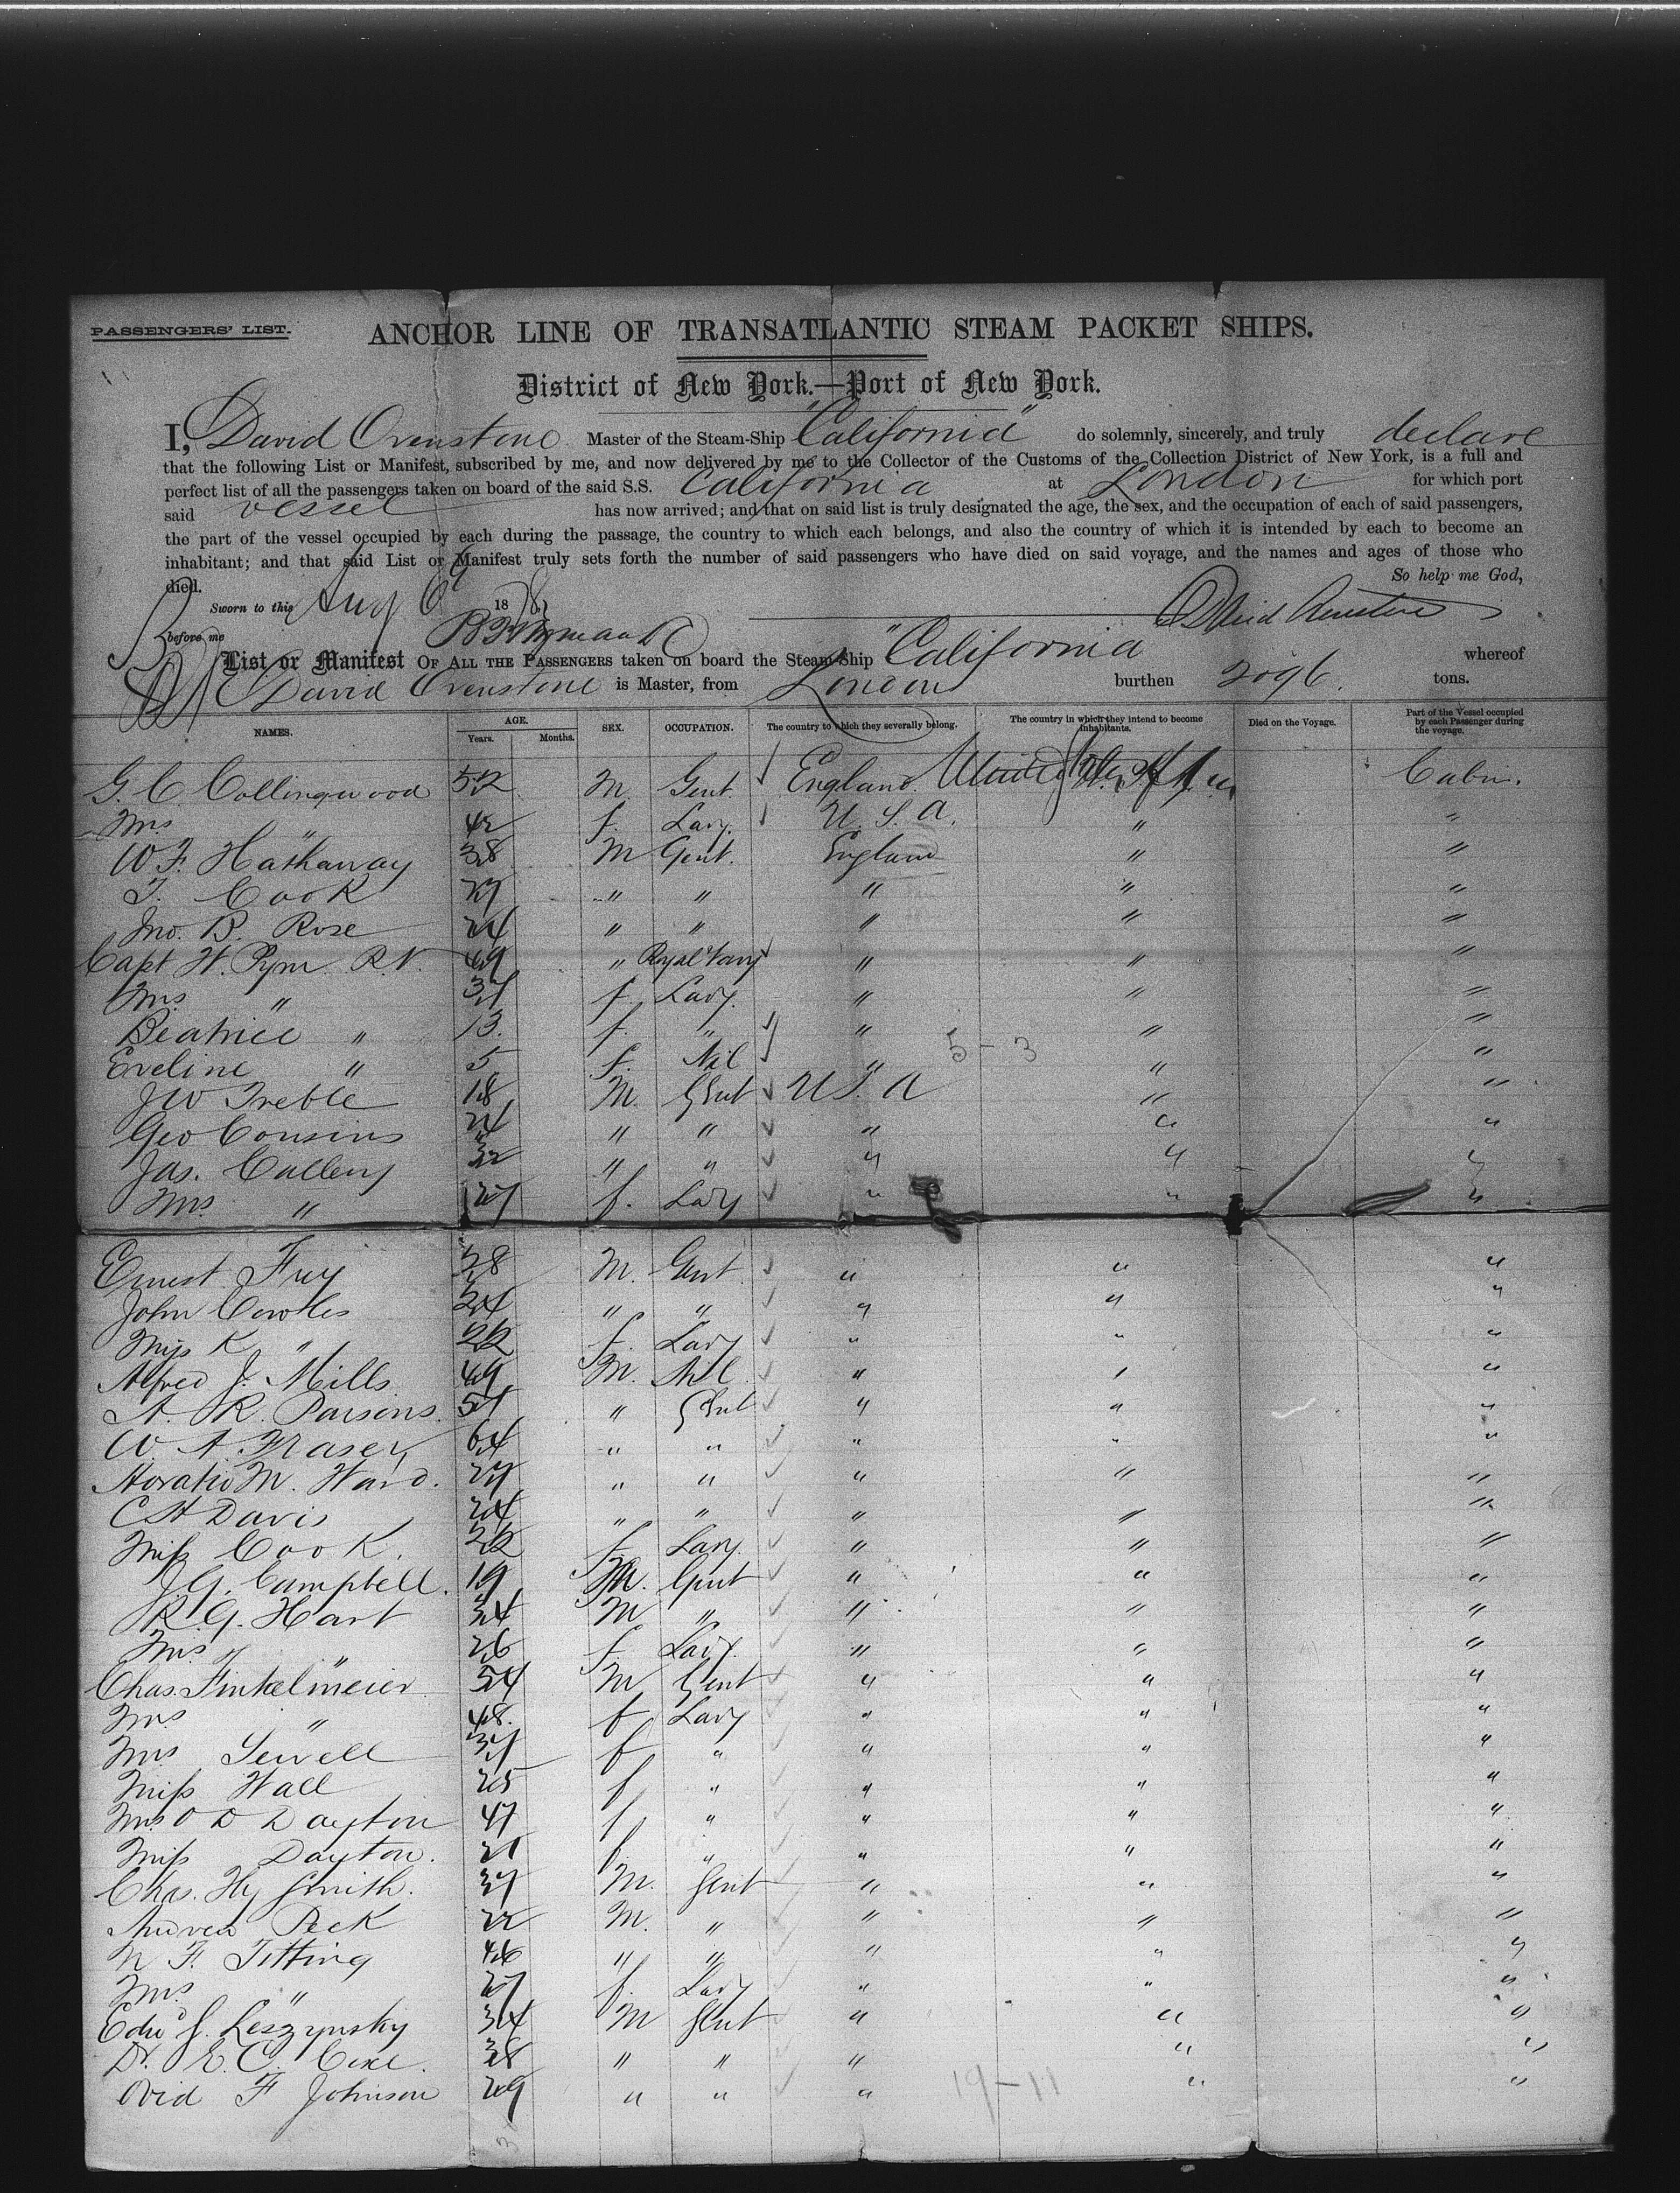 PASSENGERS' LIST.
ANCHOR LINE OF TRANSATLANTIC STEAM PACKET SHIPS.
District of New York.—Port of New York.
I, David Ovenstone Master of the Steam-Ship "California" do solemnly, sincerely, and truly declare
that the following List or Manifest, subscribed by me, and now delivered by me to the Collector of the Customs of the Collection District of New York, is a full and
perfect list of all the passengers taken on board of the said S.S. California at London for which port
said vessel has now arrived; and that on said list is truly designated the age, the sex, and the occupation of each of said passengers,
the part of the vessel occupied by each during the passage, the country to which each belongs, and also the country of which it is intended by each to become an
inhabitant; and that said List or Manifest truly sets forth the number of said passengers who have died on said voyage, and the names and ages of those who
died. So help me God,
Sworn to this Aug 18
before me David Ovenstone
List or Manifest OF ALL THE PASSENGERS taken on board the Steam-Ship "California whereof
David Ovenstone is Master, from London burthen 2096. tons.
NAMES. AGE. Years. Months. SEX. OCCUPATION. The country to which they severally belong. The country in which they intend to become inhabitants. Died on the Voyage. Part of the Vessel occupied by each Passenger during the voyage.
G. C. Collingwood 52 M. Gent. England. United States Cabin.
Mrs " 42 f. Lady. U. S. A. " "
W. F. Hathaway 38 M Gent. England " "
T. Cook 27 " " " " "
Jno. B. Rose 24 " " " " "
Capt W. Pym R.N. 69 " Royal Navy " " "
Mrs " 37 f. Lady. " " "
Beatrice " 13. f. " " " "
Eveline " 5 f. Nil " " "
5-3
J W Treble 18 M. Gent U S. A " "
Geo Cousins 24 " " " " "
Jas. Callery 32 " " " " "
Mrs. " 27 f. Lady " " "
Ernest Fry 38 M. Gent " " "
John Cowles 24 " " " " "
Miss K " 22 f. Lady " " "
Alfred J. Mills 49 M. Nil " " "
A. R. Parsons. 57 " Gent " " "
W. A. Fraser 64 " " " " "
Horatio M. Ward. 27 " " " " "
C H Davis 24 " " " " "
Miss Cook. 22 f. Lady. " " "
J. G. Campbell. 19 M. Gent " " "
R. G. Hart 34 M " " " "
Mrs " 26 f. Lady. " " "
Chas. Finkelmeier 54 M Gent " " "
Mrs " 48. f Lady " " "
Mrs Sewell 37 f " " " "
Miss Wall 25 f " " " "
Mrs O D Dayton 47 f " " " "
Miss Dayton. 21 f. " " " "
Chas. Hy Smith. 37 M. Gent " " "
Andrew Peck 22 M. " " " "
N. F. Titting 46 " " " " "
Mrs. " 27 f. Lady " " "
Edwd J. Leszynsky 34 M Gent " " "
Dr. E. C. Cixe. 38 " " " " "
19-11
Ovid F Johnson 29 " " " " "